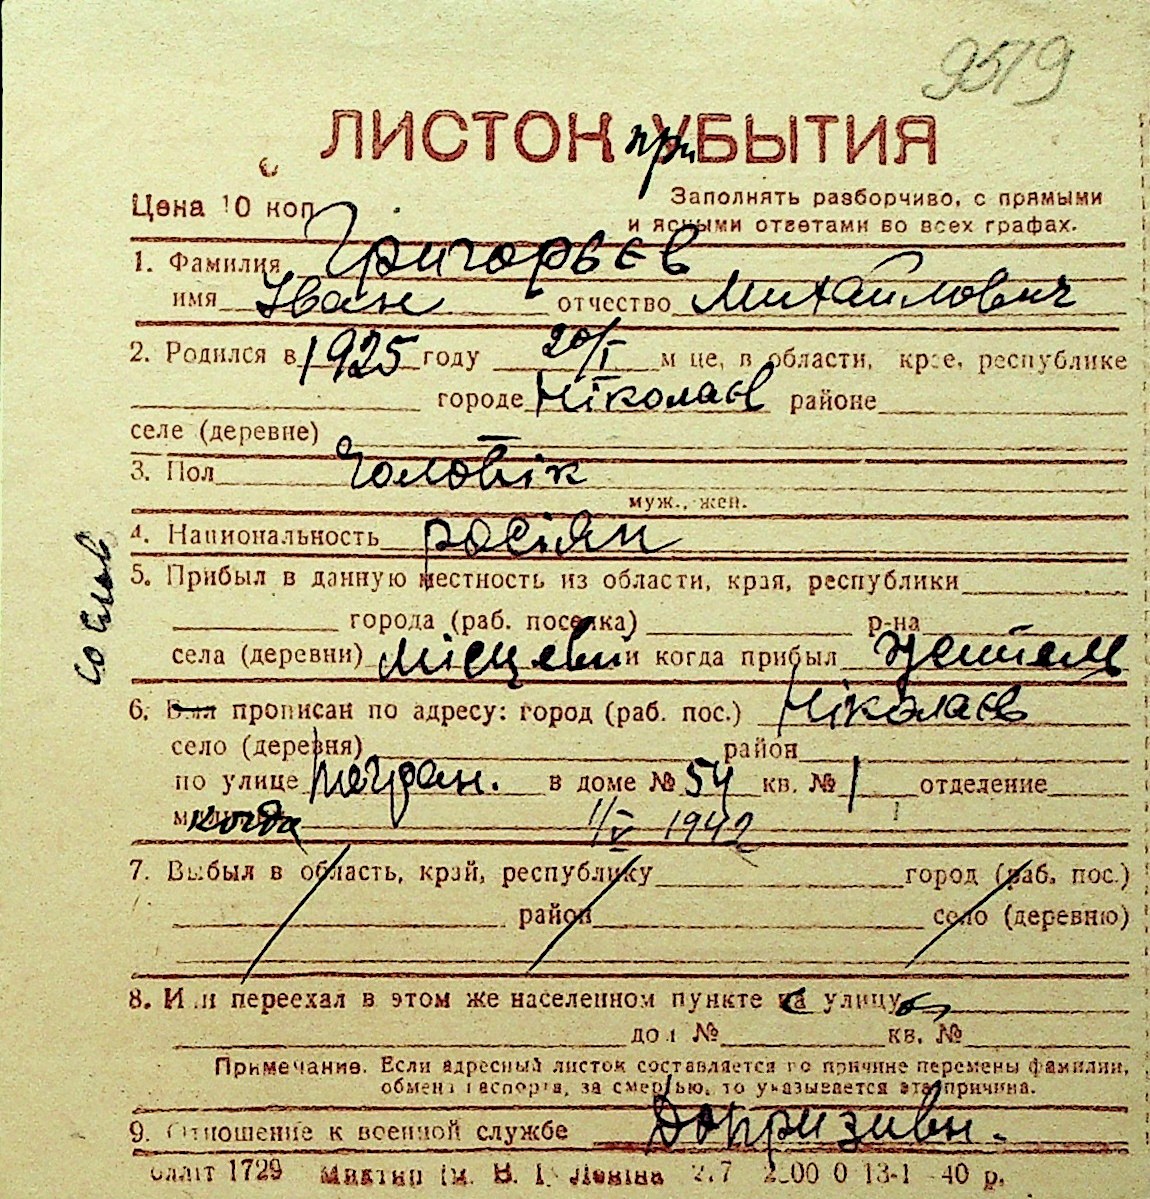 9579
ЛИСТОК при УБЫТИЯ
Цена 10 коп.
Заполнять разборчиво, с прямыми
и ясными ответами во всех графах.
1. Фамилия Григорьєв
имя Іван отчество Михайлович
2. Родился в 1925 году 20/I м-це, в области, крае, республике
городе Ніколаєв районе
селе (деревне) —
3. Пол Чоловік
муж., жен.
4. Национальность росіян
5. Прибыл в данную местность из области, края, республики
города (раб. поселка) р-на
села (деревни) місцевий и когда прибыл житель
6. Был прописан по адресу: город (раб. пос.) Ніколаєв
село (деревня) район
по улице в доме № 54 кв. № 1 отделение
когда 1/V 1942
7. Выбыл в область, край, республику город (раб. пос.)
район село (деревню)
8. Или переехал в этом же населенном пункте на улицу
дом № кв. №
Примечание. Если адресный листок составляется по причине перемены фамилии,
обмена паспорта, за смертью, то указывается эта причина.
9. Отношение к военной службе Допризивн.
Облліт 1729 ім. В. І. Леніна 13-1 -40 р.